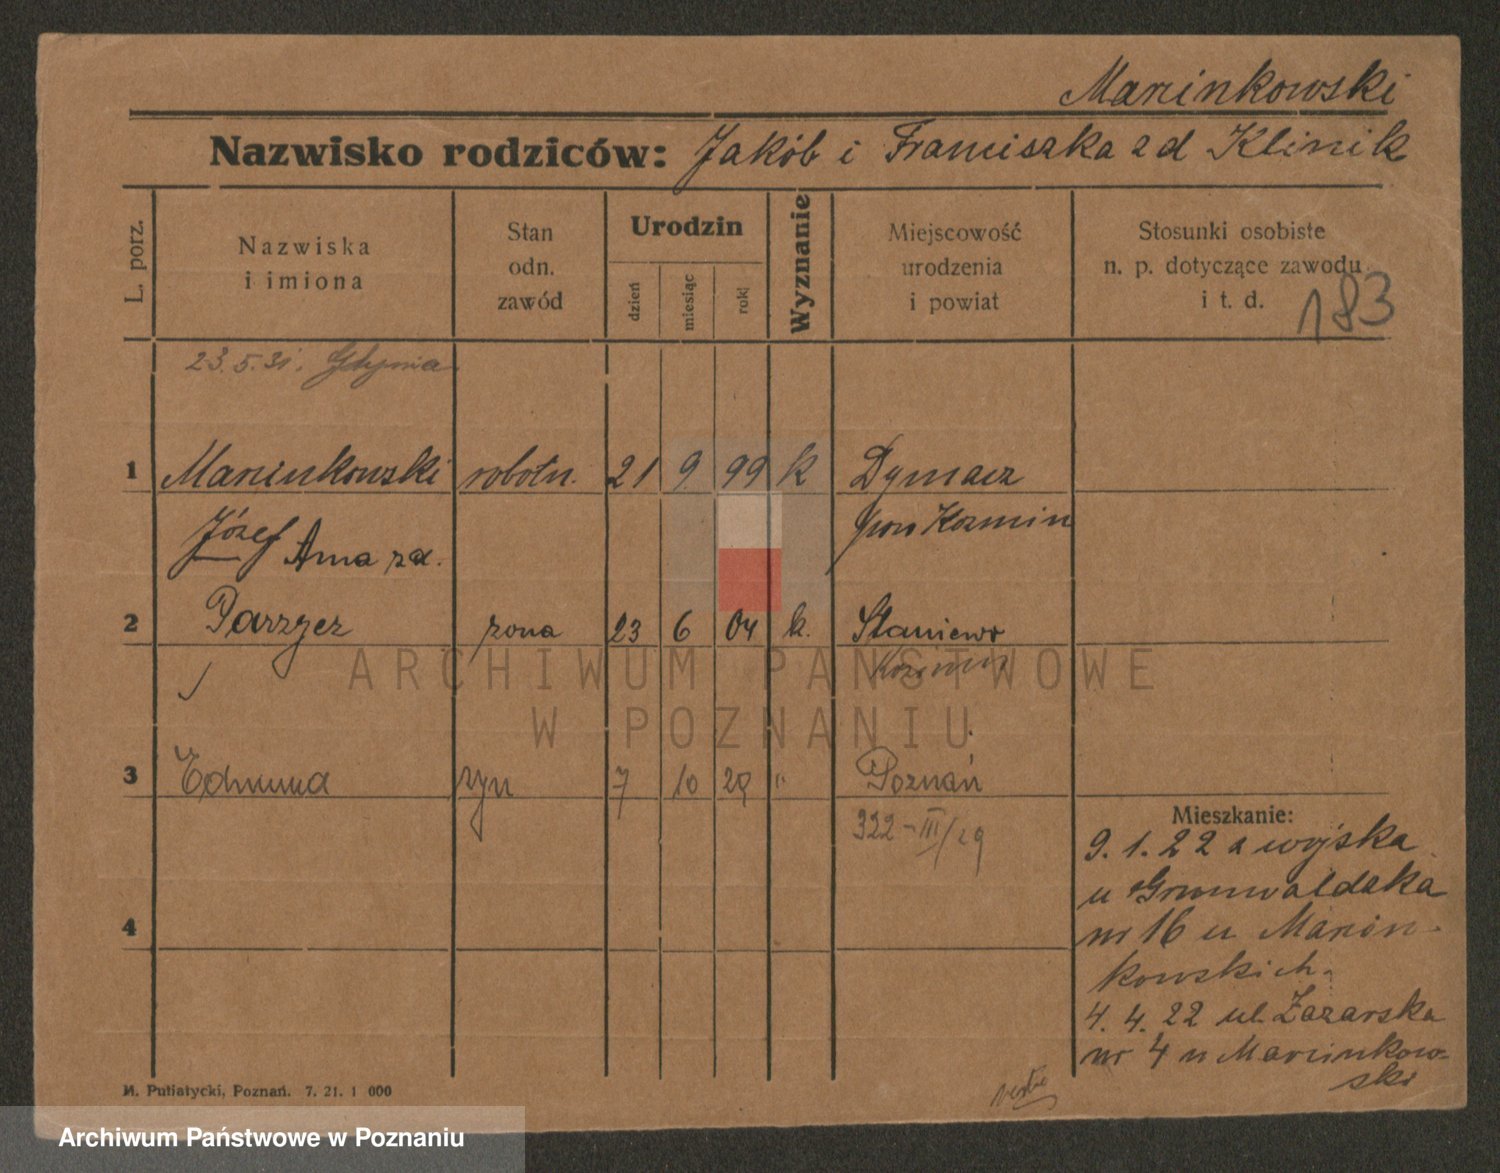 Marcinkowski
Nazwisko rodziców: Jakób i Franciszka z d Klinik
L. porz.
Nazwiska
i imiona
Stan
odn.
zawód
Urodzin
dzień
miesiąc
rok
Wyznanie
Miejscowość
urodzenia
i powiat
Stosunki osobiste
n. p. dotyczące zawodu
i t. d.
183
23.5.31.
1 Marcinkowski robotn. 21 9 99 k
Józef pow Kozmin
Anna zd.
2 żona 23 6 04 k. Staniewo
Kozmin
3 Edmund syn 7 10 29 " Poznań
322-III/29
4
Mieszkanie:
9.1.22 z wojska
u Grunwaldzka
nr 16 u Marcin-
kowskich.
4.4.22 ul. Łazarska
nr 4 u Marcinkow-
ski
verte
M. Putiatycki, Poznań. 7. 21. 1 000
ARCHIWUM PAŃSTWOWE
W POZNANIU
Archiwum Państwowe w Poznaniu